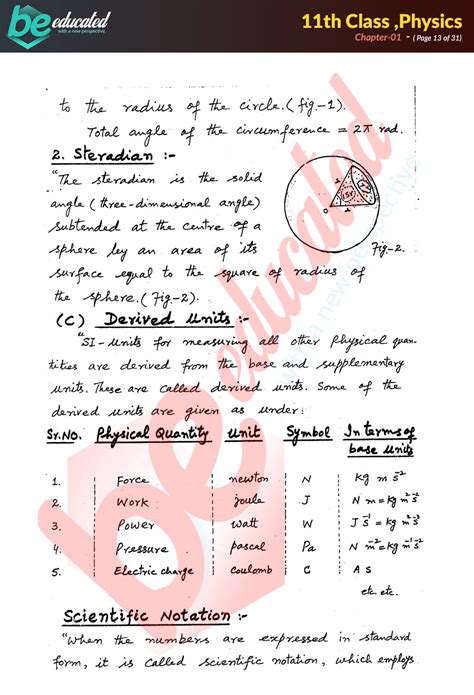 be educated
with a new perspective
11th Class ,Physics
Chapter-01 - ( Page 13 of 31)
to the radius of the circle.(fig-1).
Total angle of the circumference = 2π rad.
2. Steradian :-
"The steradian is the solid
angle (three-dimensional angle)
subtended at the centre of a
sphere by an area of its
Fig-2.
surface equal to the square of radius of
the sphere.(Fig-2).
(C) Derived Units :-
"SI-Units for measuring all other Physical quan-
tities are derived from the base and supplementary
units. These are called derived units. Some of the
derived units are given as under:
Sr.No. Physical Quantity unit Symbol In terms of base units
1. Force newton N kg m s⁻²
2. Work joule J N m = kg m² s⁻²
3. Power watt W J s⁻¹ = kg m² s⁻³
4. Pressure pascal Pa N m⁻² = kg m⁻¹ s⁻²
5. Electric charge coulomb C A S
etc. etc.
Scientific Notation :-
"When the numbers are expressed in standard
form, it is called scientific notation, which employs
be educated
with a new perspective